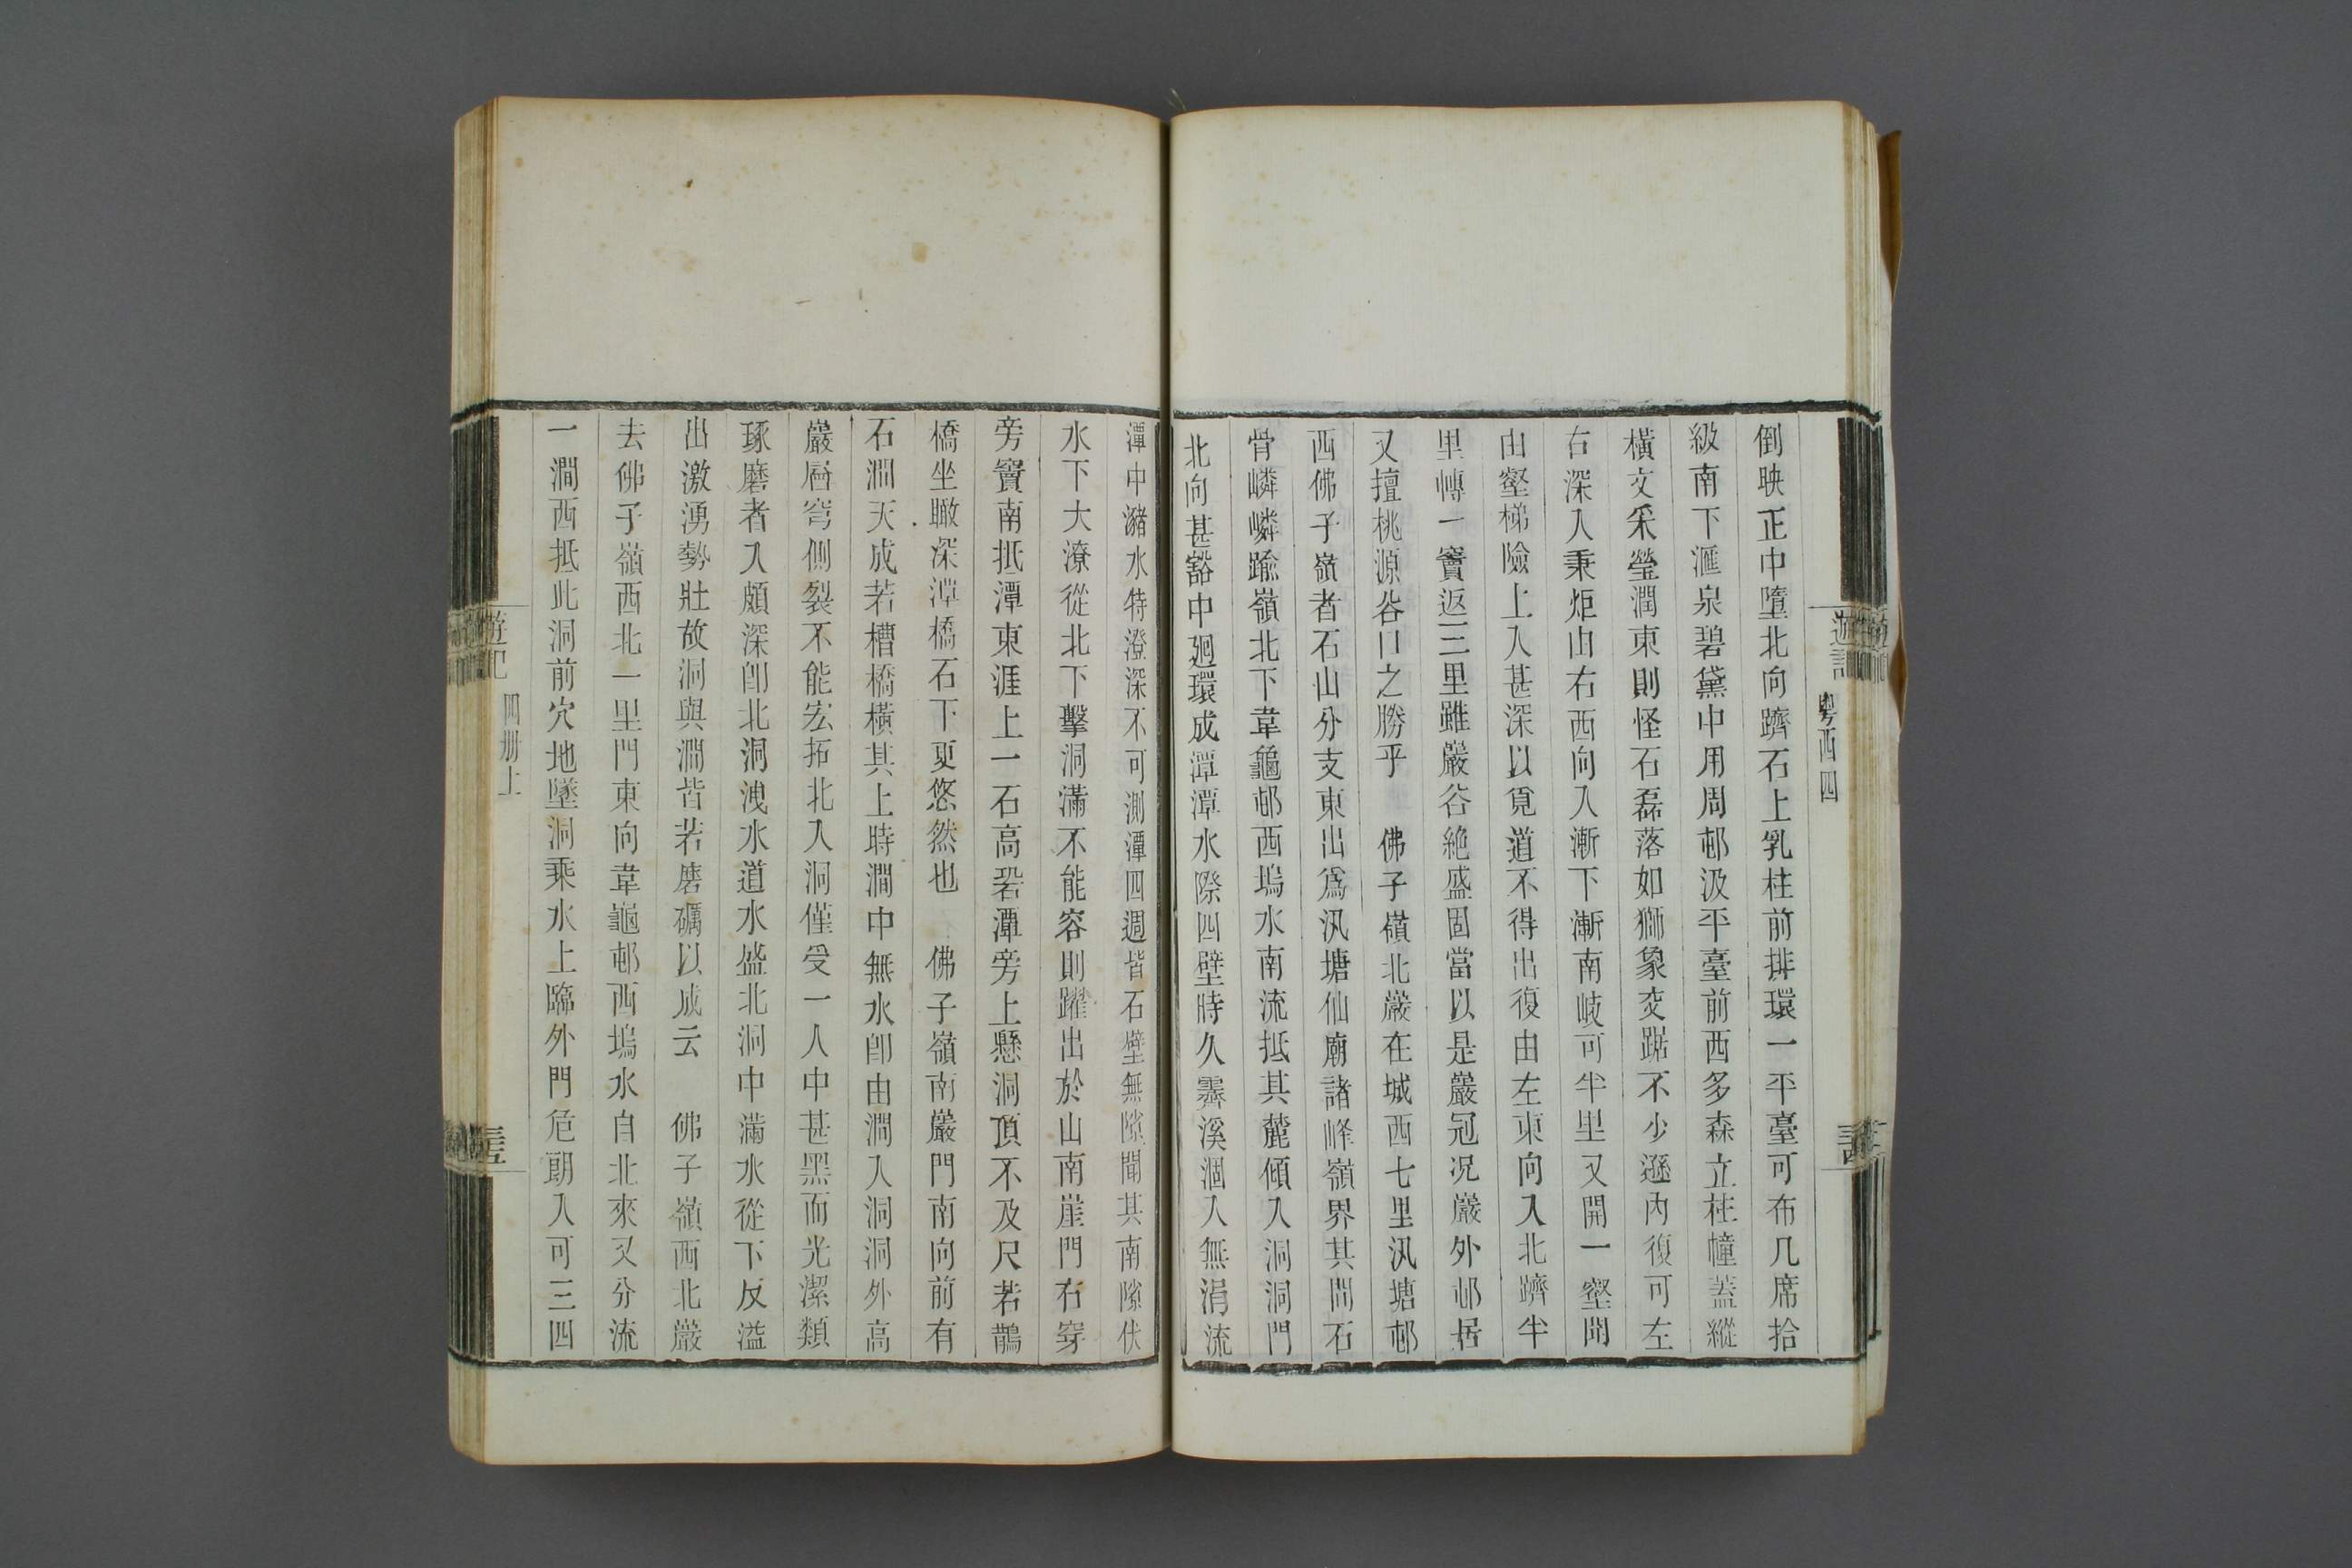 遊記
粵西四
倒映正中墮北向躋石上乳柱前排環一平臺可布几席拾
級南下滙泉碧黛中用周邨汲平臺前西多森立柱幢蓋縱
橫文采瑩潤東則怪石磊落如獅象交踞不少遜內復可左
右深入秉炬由右西向入漸下漸南岐可半里又開一壑聞
由壑梯險上入甚深以覓道不得出復由左東向入北躋半
里轉一竇返三里雖巖谷絶盛固當以是巖冠況巖外邨居
又擅桃源谷口之勝乎　佛子嶺北巖在城西七里汛塘邨
西佛子嶺者石山分支東出爲汛塘仙廟諸峰嶺界其間石
骨嶙嶙踰嶺北下韋龜邨西塢水南流抵其麓傾入洞洞門
北向甚豁中廻環成潭潭水際四壁時久霽溪涸入無涓流
潭中瀦水特澄深不可測潭四週皆石壁無隙聞其南隙伏
水下大潦從北下擊洞滿不能容則躍出於山南崖門右穿
旁竇南抵潭東涯上一石高砦潭旁上懸洞頂不及尺若鵲
橋坐瞰深潭橋石下更悠然也　佛子嶺南巖門南向前有
石澗天成若槽橋橫其上時澗中無水卽由澗入洞洞外高
巖層穹側裂不能宏拓北入洞僅受一人中甚黑而光潔類
琢磨者入頗深卽北洞洩水道水盛北洞中滿水從下反溢
出激湧勢壯故洞與澗皆若磨礪以成云　佛子嶺西北巖
去佛子嶺西北一里門東向韋龜邨西塢水自北來又分流
一澗西抵此洞前穴地墜洞乘水上臨外門危朗入可三四
遊記
四册上